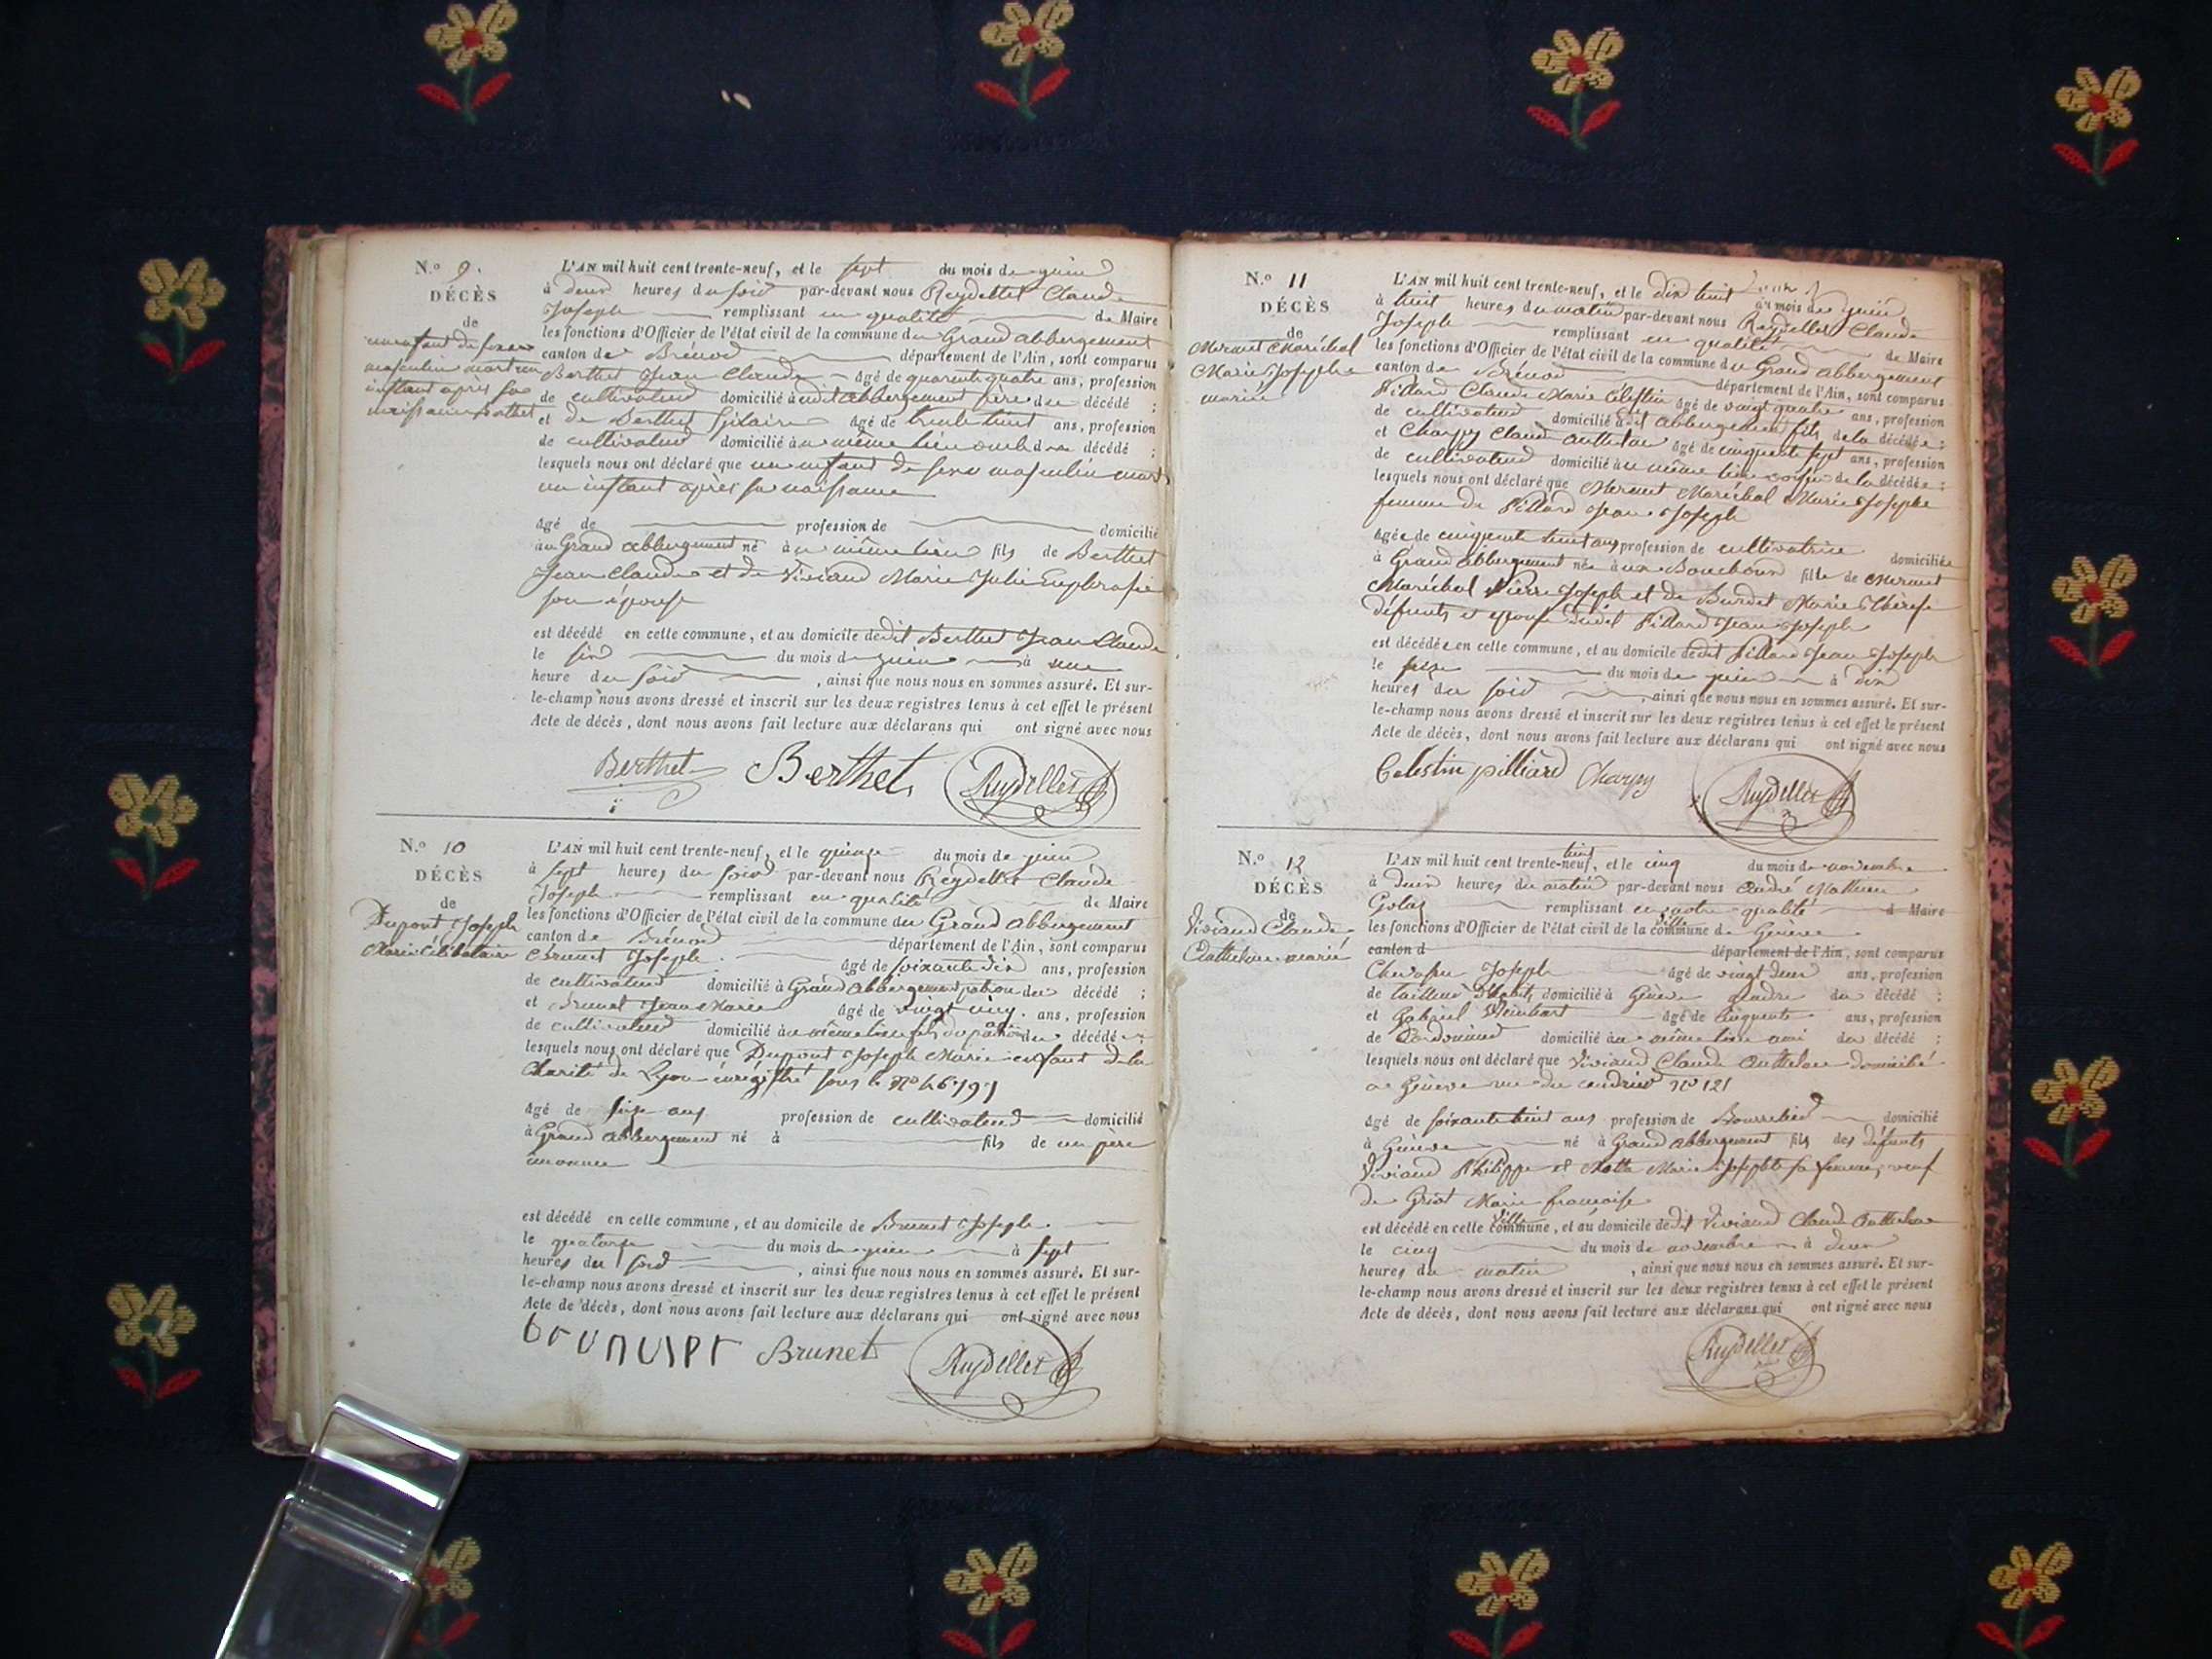 N.º 9.
DÉCÈS
de
un enfant du sexe
masculin mort un
instant après sa
naissance Berthet
L'AN mil huit cent trente-neuf, et le sept du mois de juin
à deux heures du soir par-devant nous Reydellet Claude
Joseph remplissant en qualité de Maire
les fonctions d'Officier de l'état civil de la commune du Grand abbergement
canton de Brénod département de l'Ain, sont comparus
Berthet Jean Claude âgé de quarente quatre ans, profession
de cultivateur domicilié audit abbergement père du décédé ;
et de Berthet Hilaire âgé de trente huit ans, profession
de cultivateur domicilié au même lieu oncle du décédé ;
lesquels nous ont déclaré que un enfant de sexe masculin mort
un instant après sa naissance
âgé de profession de domicilié
au Grand abbergement né au même lieu fils de Berthet
Jean Claude et de Viviand Marie Julie Euphrasie
son épouse
est décédé en cette commune, et au domicile dudit Berthet Jean Claude
le six du mois de juin à une
heure du soir , ainsi que nous nous en sommes assuré. Et sur-
le-champ nous avons dressé et inscrit sur les deux registres tenus à cet effet le présent
Acte de décès, dont nous avons fait lecture aux déclarans qui ont signé avec nous
Berthet Berthet Reydellet
N.º 10
DÉCÈS
de
Dupont Joseph
Marie Célibataire
L'AN mil huit cent trente-neuf, et le quinze du mois de juin
à sept heures du soir par-devant nous Reydellet Claude
Joseph remplissant en qualité de Maire
les fonctions d'Officier de l'état civil de la commune du Grand abbergement
canton de Brénod département de l'Ain, sont comparus
Brunet Joseph âgé de soixante dix ans, profession
de cultivateur domicilié à Grand abbergement patron du décédé ;
et Brunet Jean Marie âgé de vingt cinq ans, profession
de cultivateur domicilié au même lieu fils du patron du décédé ;
lesquels nous ont déclaré que Dupont Joseph Marie enfant de la
Charité de Lyon enrégistré sous le nº
âgé de seize ans profession de cultivateur domicilié
à Grand abbergement né à fils de un père
inconnu
est décédé en cette commune, et au domicile de Brunet Joseph
le quatorze du mois de juin à sept
heures du soir , ainsi que nous nous en sommes assuré. Et sur-
le-champ nous avons dressé et inscrit sur les deux registres tenus à cet effet le présent
Acte de décès, dont nous avons fait lecture aux déclarans qui ont signé avec nous
Brunet Reydellet
N.º 11
DÉCÈS
de
Mermet Maréchal
Marie Josephe
mariée
L'AN mil huit cent trente-neuf, et le dix huit du mois de juin
à huit heures du matin par-devant nous Reydellet Claude
Joseph remplissant en qualité de Maire
les fonctions d'Officier de l'état civil de la commune du Grand abbergement
canton de Brénod département de l'Ain, sont comparus
Pillard Claude Marie Célestin âgé de vingt quatre ans, profession
de cultivateur domicilié audit abbergement fils de la décédée ;
et Charpy Claude Anthelme âgé de cinquente sept ans, profession
de cultivateur domicilié au même lieu voisin de la décédée ;
lesquels nous ont déclaré que Mermet Maréchal Marie Josephe
femme de Pillard Jean Joseph
âgée de cinquente huit ans profession de cultivatrice domiciliée
à Grand abbergement née aux Bouchoux fille de Mermet
Maréchal Pierre Joseph et de Burdet Marie Thérese
défunts et épouse dudit Pillard Jean Joseph
est décédée en cette commune, et au domicile dudit Pillard Jean Joseph
le seize du mois de juin à dix
heures du soir , ainsi que nous nous en sommes assuré. Et sur-
le-champ nous avons dressé et inscrit sur les deux registres tenus à cet effet le présent
Acte de décès, dont nous avons fait lecture aux déclarans qui ont signé avec nous
Celestin pilliard Charpy Reydellet
N.º 12
DÉCÈS
de
Viviand Claude
Anthelme marié
L'AN mil huit cent trente-neuf huit, et le cinq du mois de novembre
à deux heures du matin par-devant nous André Mathieu
Golaz remplissant en notre qualité d Maire
les fonctions d'Officier de l'état civil de la commune ville de Genève
canton d département de l'Ain, sont comparus
Joseph âgé de vingt deux ans, profession
de tailleur d'habits domicilié à Genève gendre du décédé ;
et Gabriel âgé de cinquente ans, profession
de Cordonnier domicilié au même lieu ami du décédé ;
lesquels nous ont déclaré que Viviand Claude Anthelme domicilié
a Genève rue du cendrier nº 121
âgé de soixante huit ans profession de Bourrelier domicilié
à Genève né à Grand abbergement fils des défunts
Viviand Philippe et Marie Josephte sa femme, veuf
de Griot Marie françoise
est décédé en cette commune ville, et au domicile dudit Viviand Claude Anthelme
le cinq du mois de novembre à deux
heures du matin , ainsi que nous nous en sommes assuré. Et sur-
le-champ nous avons dressé et inscrit sur les deux registres tenus à cet effet le présent
Acte de décès, dont nous avons fait lecture aux déclarans qui ont signé avec nous
Reydellet